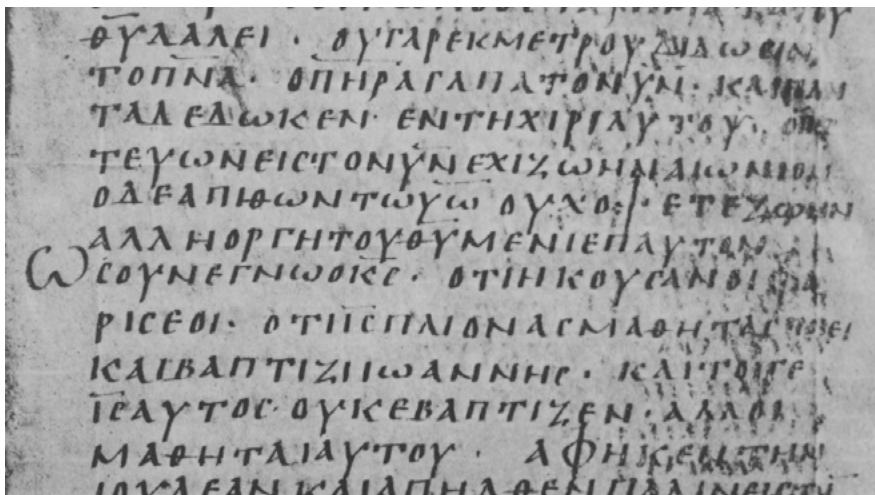 ΘΥ ΛΑΛΕΙ · ΟΥ ΓΑΡ ΕΚ ΜΕΤΡΟΥ ΔΙΔΩСΙΝ
ΤΟ ΠΝΑ · Ο ΠΗΡ ΑΓΑΠΑ ΤΟΝ ΥΝ · ΚΑΙ ΠΑΝ
ΤΑ ΔΕΔΩΚΕΝ ΕΝ ΤΗ ΧΙΡΙ ΑΥΤΟΥ · Ο ΠΙС
ΤΕΥΩΝ ΕΙС ΤΟΝ ΥΝ ΕΧΙ ΖΩΗΝ ΑΙΩΝΙΟΝ
Ο ΔΕ ΑΠΙΘΩΝ ΤΩ ΥΩ ΟΥΧ ΟΨΕΤΕ ΖΩΗΝ
ΑΛΛ Η ΟΡΓΗ ΤΟΥ ΘΥ ΜΕΝΙ ΕΠ ΑΥΤΟΝ
ΩС ΟΥΝ ΕΓΝΩ Ο ΚС · ΟΤΙ ΗΚΟΥСΑΝ ΟΙ ΦΑ
ΡΙСΕΟΙ · ΟΤΙ ΙС ΠΛΙΟΝΑС ΜΑΘΗΤΑС ΠΟΙΕΙ
ΚΑΙ ΒΑΠΤΙΖΙ Η ΙΩΑΝΝΗС · ΚΑΙΤΟΙΓΕ
ΙС ΑΥΤΟС ΟΥΚ ΕΒΑΠΤΙΖΕΝ · ΑΛΛ ΟΙ
ΜΑΘΗΤΑΙ ΑΥΤΟΥ · ΑΦΗΚΕΝ ΤΗΝ
ΙΟΥΔΕΑΝ ΚΑΙ ΑΠΗΛΘΕΝ ΠΑΛΙΝ ΕΙС ΤΗ